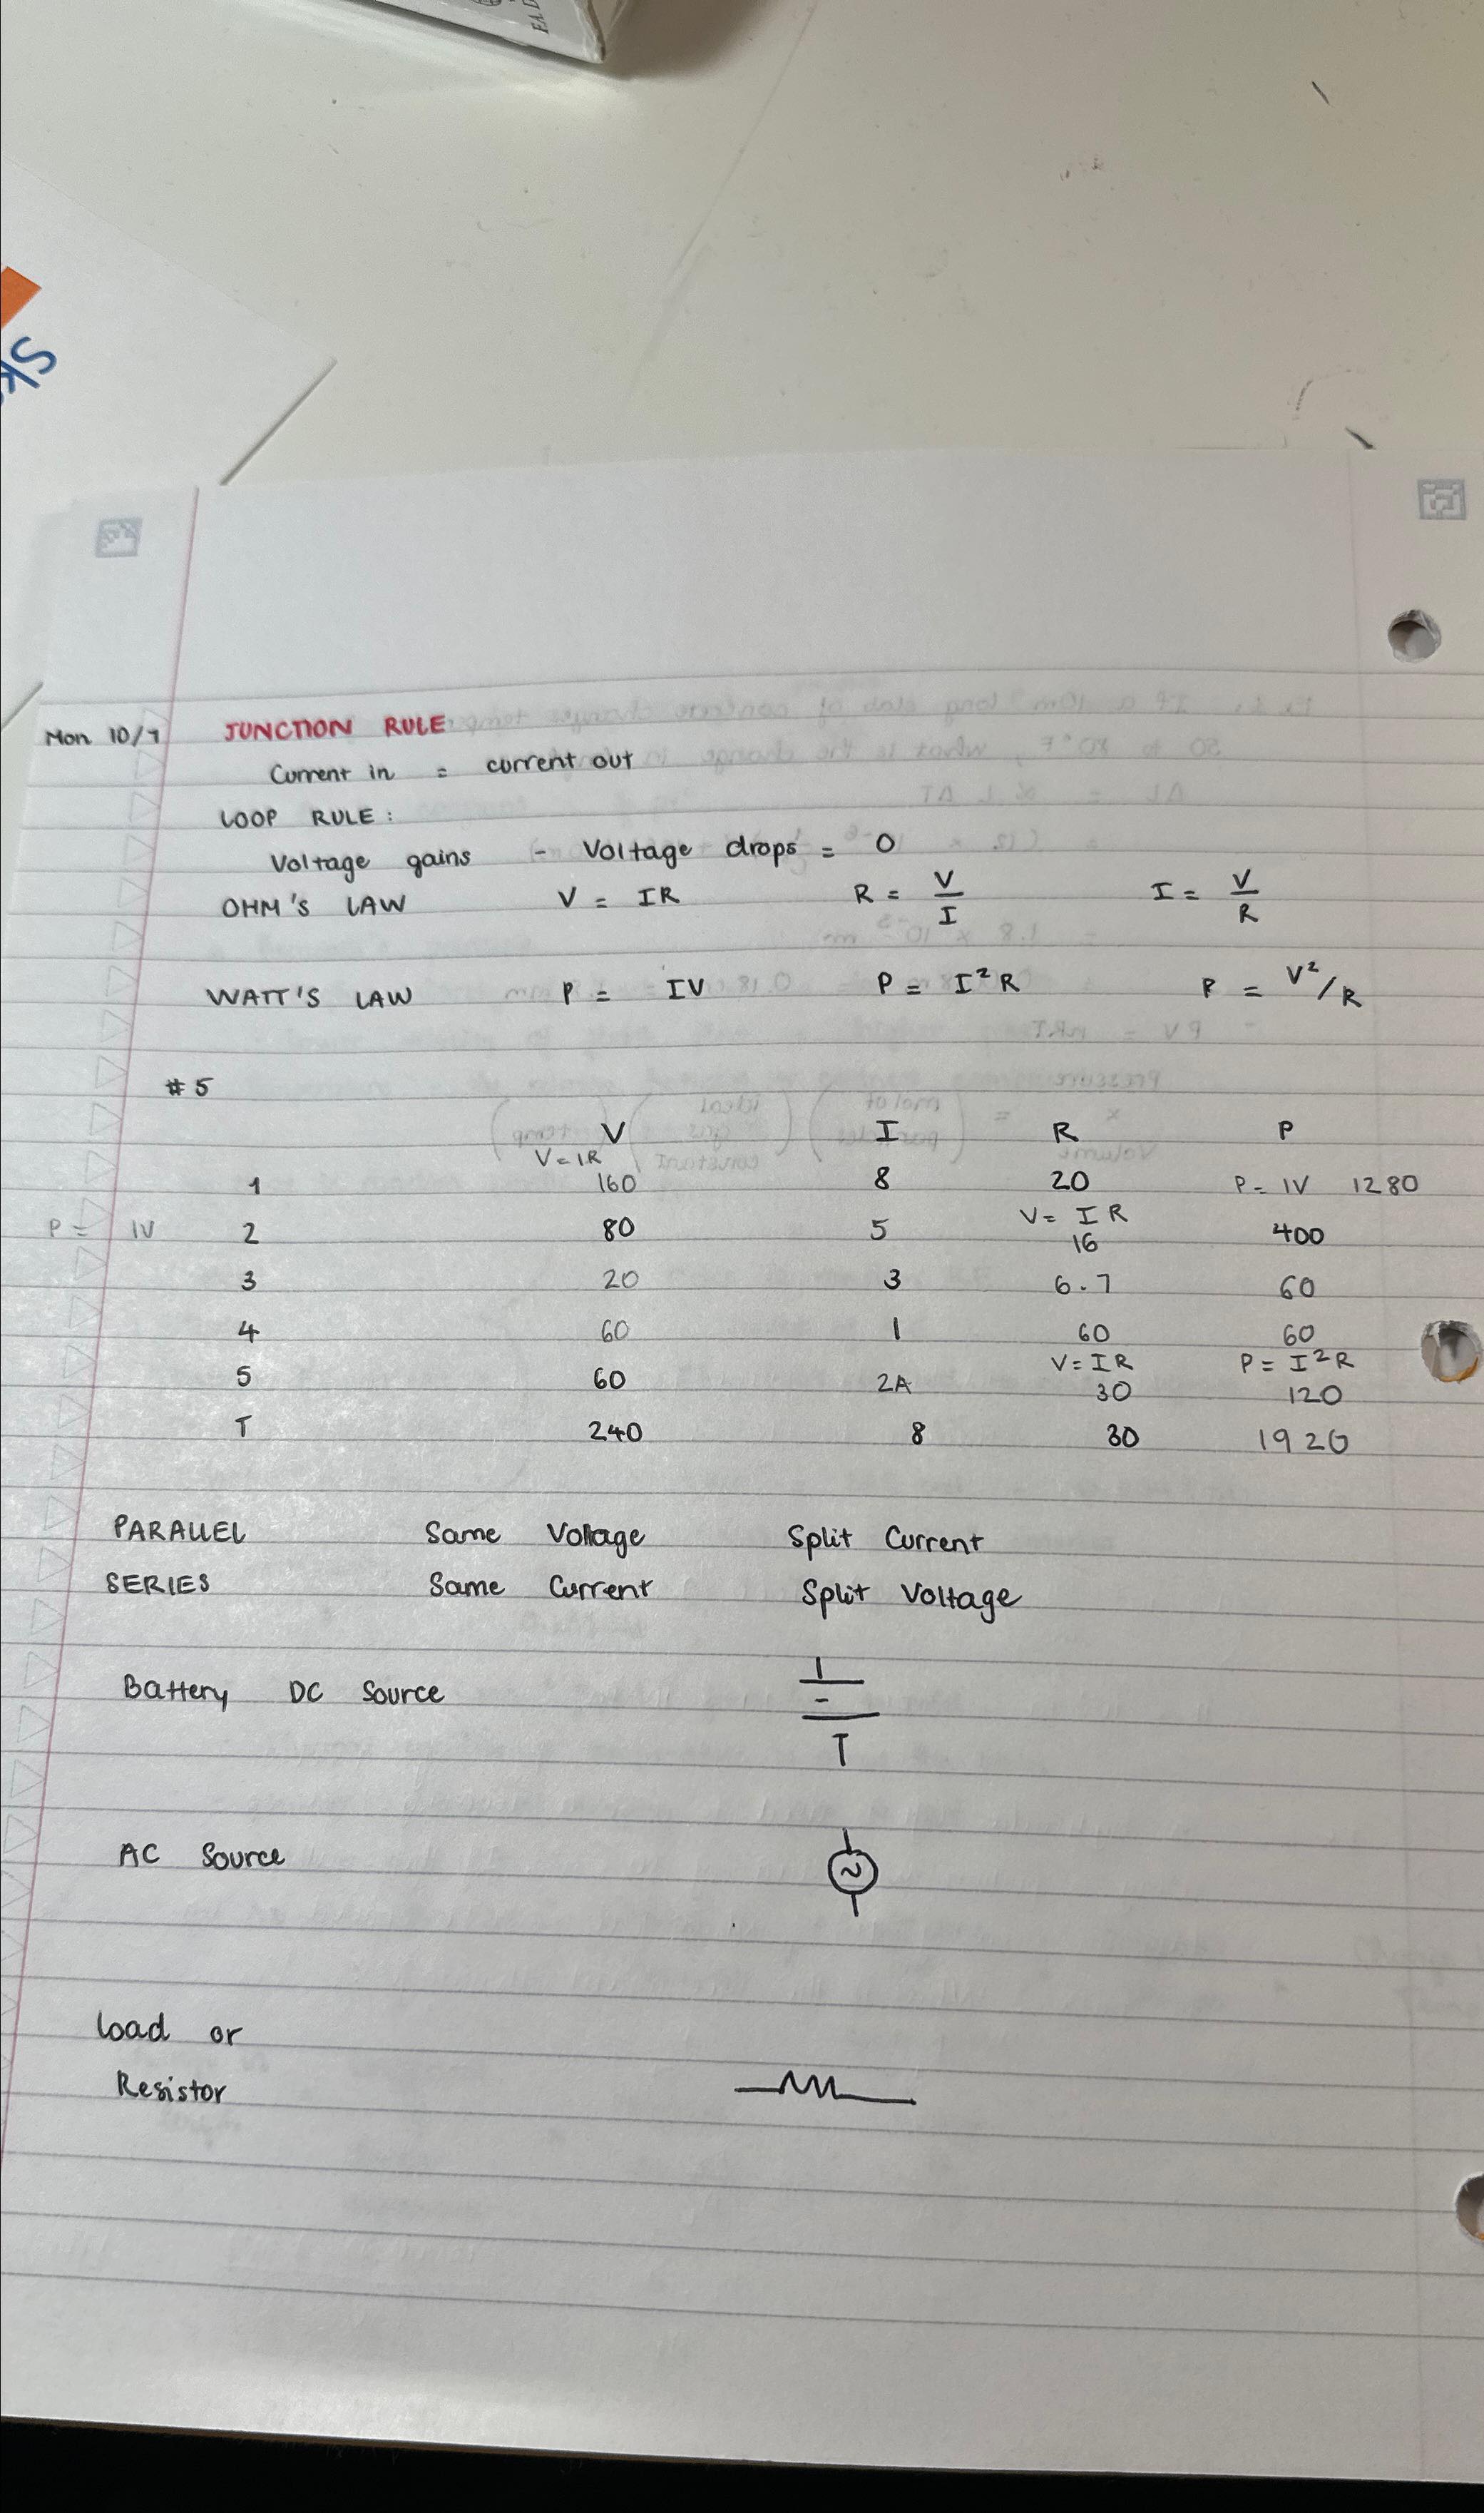 EA
Sk
Mon 10/7 JUNCTION RULE
Current in = current out
LOOP RULE:
Voltage gains - Voltage drops = 0
OHM'S LAW V = IR R = V/I I = V/R
WATT'S LAW P = IV P = I²R P = V²/R
#5
V I R P
V=IR
1 160 8 20 P=IV 1280
V= IR
P= IV 2 80 5 16 400
3 20 3 6.7 60
4 60 1 60 60
V=IR P=I²R
5 60 2A 30 120
T 240 8 30 1920
PARALLEL Same Voltage Split Current
SERIES Same Current Split Voltage
Battery DC Source
AC Source
Load or
Resistor